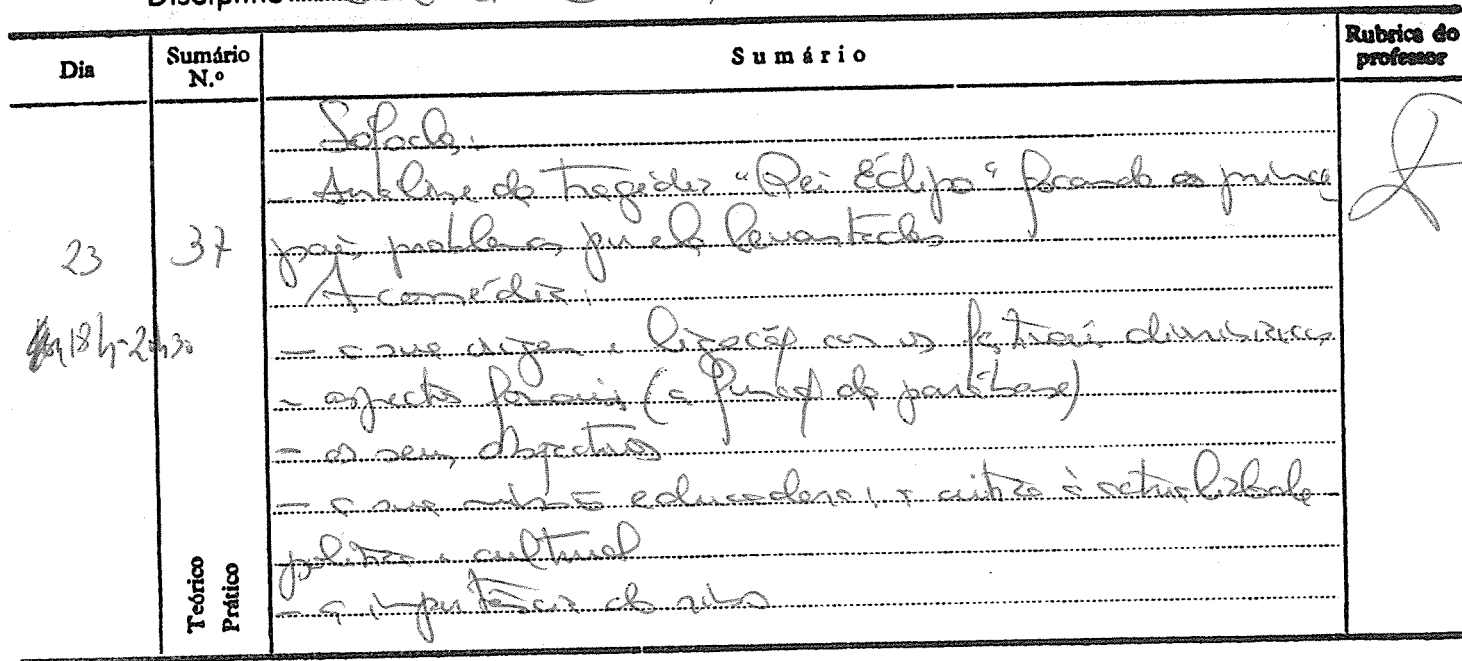 Disciplina
Dia
Sumário N.º
Sumário
Rubrica do professor
23
37
18h-20h30
Teórico
Prático
Sófocles:
- Análise da tragédia "Rei Édipo" focando os princi
pais problemas por ela levantados
A comédia:
- a sua origem e ligação com os festivais dionisíacos
- aspectos formais (a função da parábase)
- os seus objectivos
- a sua missão educadora: a crítica à actualidade
política e cultural
- a importância do riso